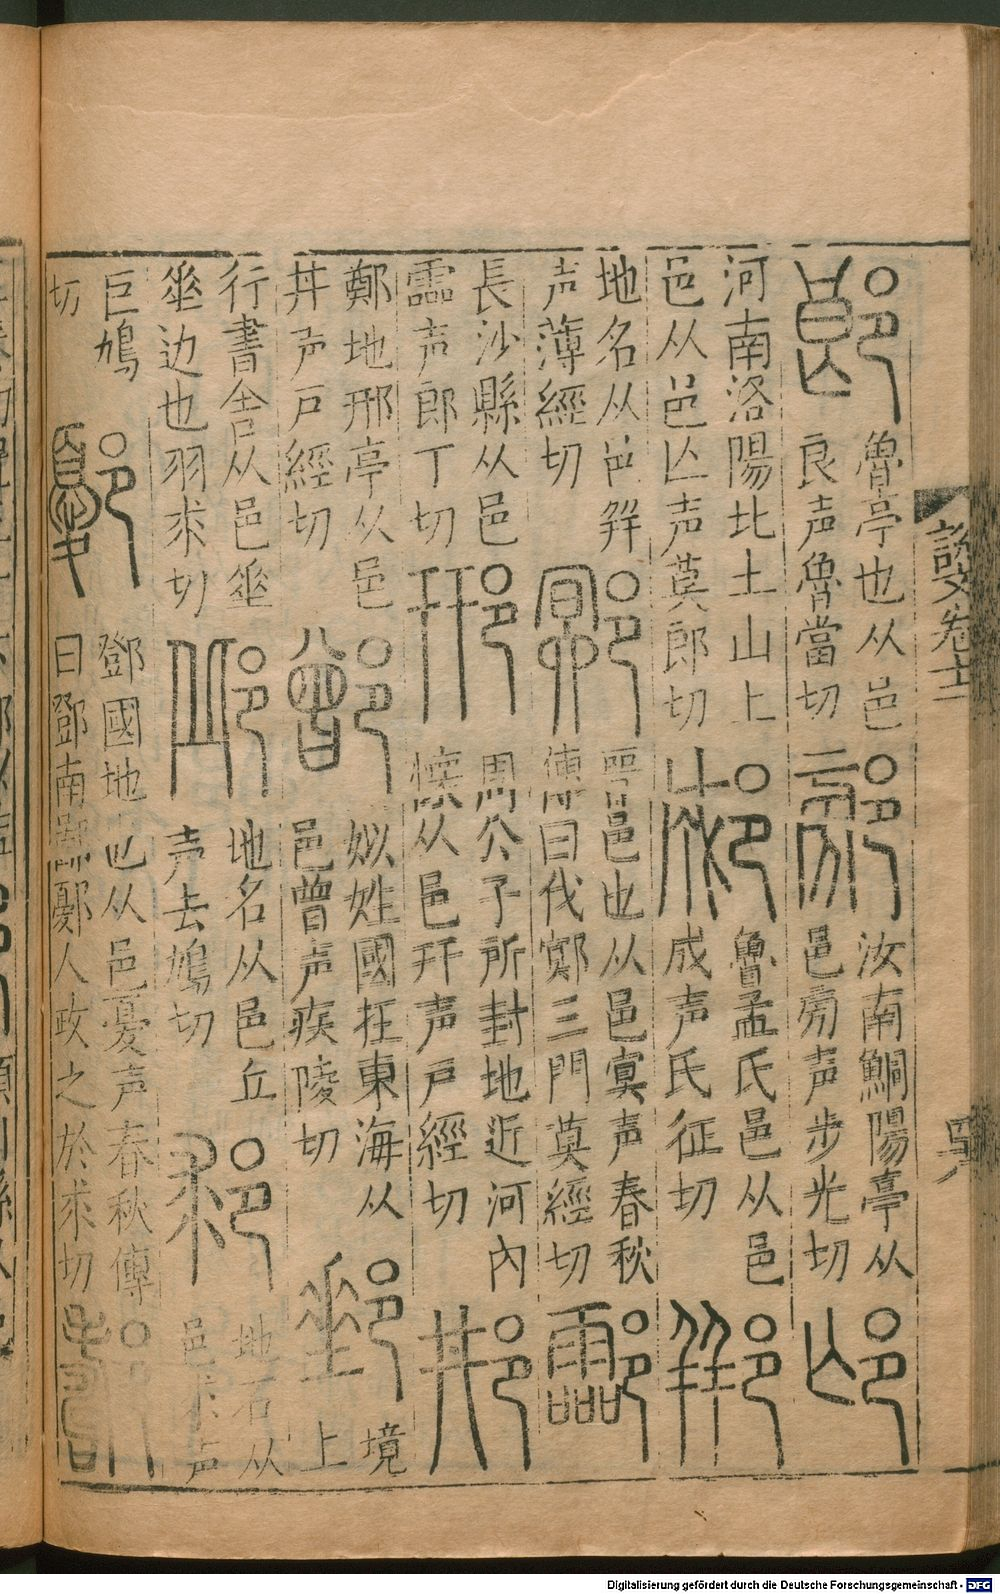 説文卷十二
郎
魯亭也从邑
良声魯當切
䣙
汝南鮦陽亭从
邑旁声步光切
邙
河南洛陽北土山上
邑从邑亾声莫郎切
郕
魯孟氏邑从邑
成声氏征切
郱
地名从邑幷
声薄經切
鄍
晋邑也从邑㝠声春秋
傳曰伐鄭三門莫經切
酃
長沙縣从邑
霝声郎丁切
邢
周公子所封地近河內
懷从邑幵声戸經切
丼阝
鄭地邢亭从邑
丼声戸經切
鄫
姒姓國在東海从
邑曾声疾陵切
郵
境
上
行書舎从邑垂
垂边也羽求切
邱
地名从邑丘
声去鳩切
地名从
邑 声
巨鳩
切
鄾
鄧國地也从邑憂声春秋傳
曰鄧南鄙鄾人攻之於求切